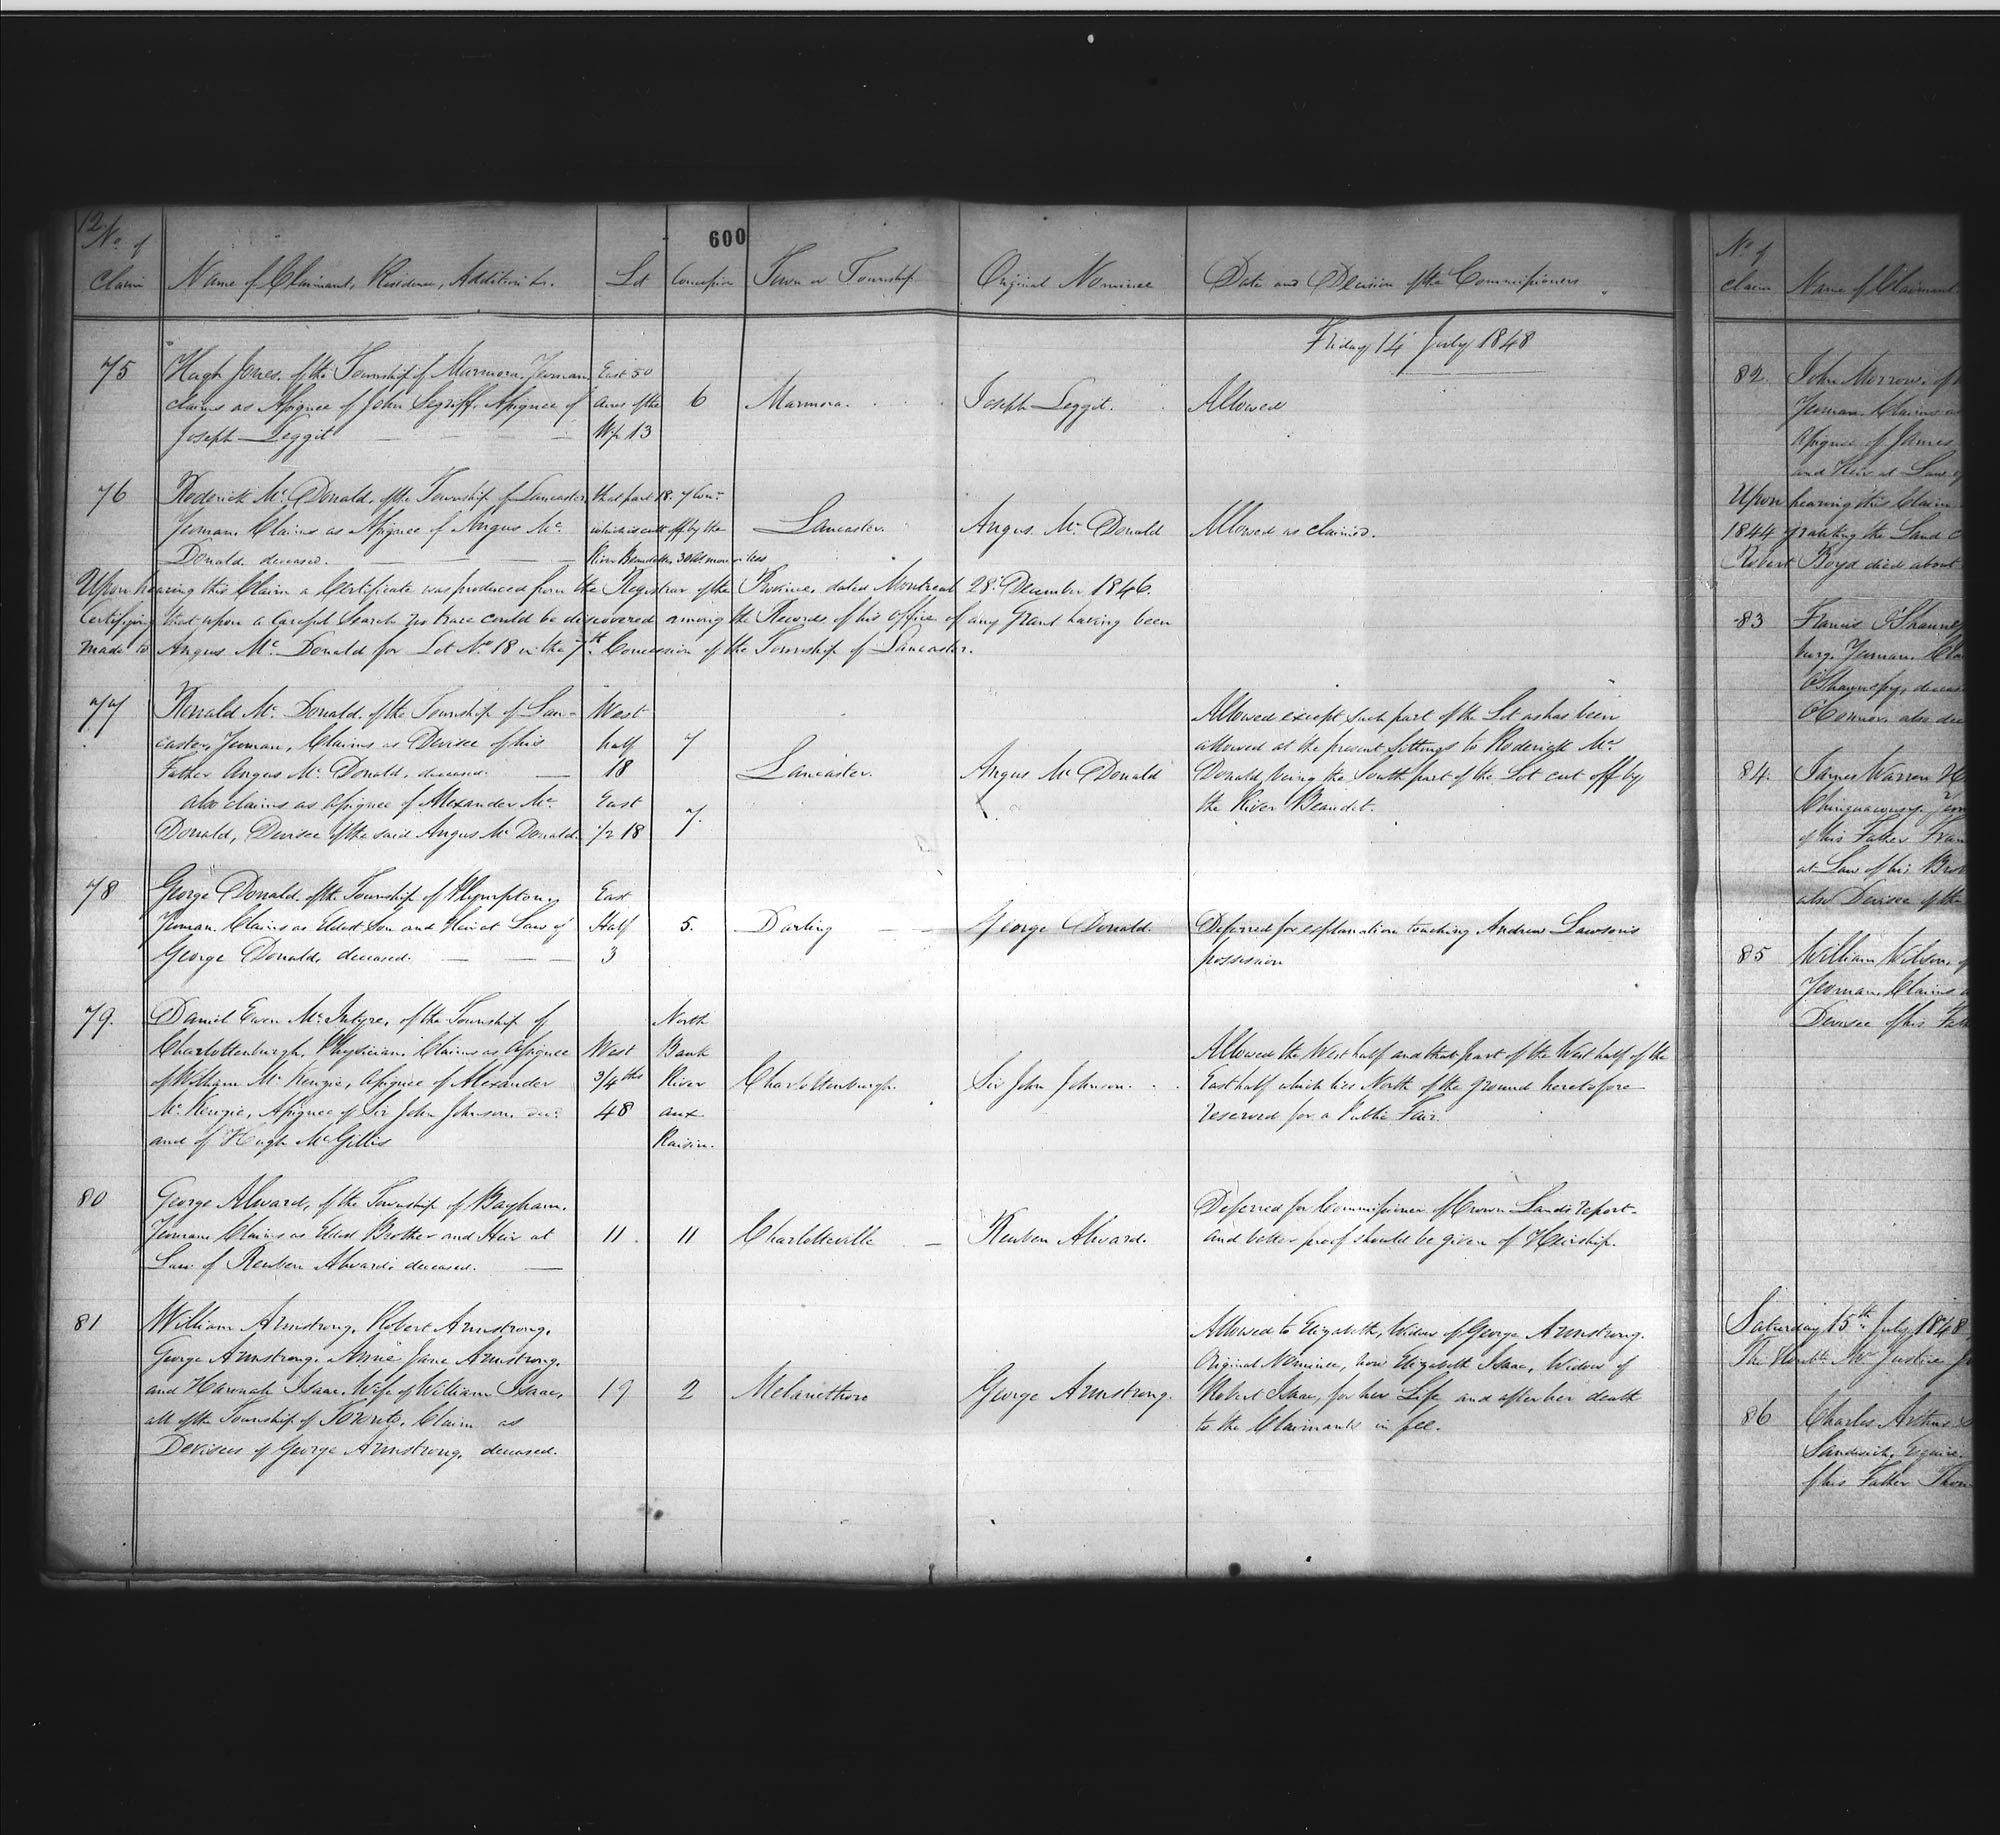 12
600
No. of
Claim Name of Claimant, Residence, Addition &c. Lot Concession Town or Township Original Nominee Date and Decision of the Commissioners
Friday 14 July 1848
75 Hugh Jones, of the Township of Marmora, Yeoman, East 50
claims as Assignee of John Assignee of Acres of the 6 Marmora. Joseph Leggit. Allowed
Joseph Leggit W ½ 13
76 Roderick Mc. Donald, of the Township of Lancaster, that part 18. 7 Con.
Yeoman, Claims as Assignee of Angus Mc. which is cut off by the Lancaster. Angus Mc. Donald Allowed as claimed.
Donald, deceased. River 30 acs more or less
Upon hearing this Claim a Certificate was produced from the Registrar of the Province, dated Montreal 28. December 1846.
Certifying that upon a Careful Search no trace could be discovered among the Records of his Office of any Grant having been
made to Angus Mc. Donald for Lot No. 18 in the 7th. Concession of the Township of Lancaster.
77 Ronald Mc. Donald, of the Township of Lan- West Allowed except such part of the Lot as has been
caster, Yeoman, Claims as Devisee of his half 7 allowed at the present Sittings to Roderick Mc.
Father Angus Mc. Donald, deceased. 18 Lancaster. Angus Mc Donald Donald, being the South part of the Lot cut off by
also claims as assignee of Alexander Mc. East the River Beaudet.
Donald, Devisee of the said Angus Mc Donald. ½ 18 7.
78 George Donald, of the Township of Plympton, East
Yeoman, Claims as Eldest Son and Heir at Law of Half 5. Darling George Donald. Deferred for explanation touching Andrew Lawson's
George Donald, deceased. 3 possession
79. Daniel Ewen Mc. Intyre, of the Township of North
Charlottenburgh, Physician, Claims as Assignee West Bank Allowed the West half and that part of the West half of the
of William Mc. Kenzie, Assignee of Alexander 3/4ths River Charlottenburgh. Sir John Johnson. East half which lies North of the ground heretofore
Mc. Kenzie, Assignee of Sir John Johnson, dec. 48 aux reserved for a Public Fair.
and of Hugh McGillis Raisin.
80 George Alward, of the Township of Bayham, Deferred for Commissioner of Crown Land's report-
Yeoman Claims as Eldest Brother and Heir at 11. 11 Charlotteville Reuben Alward. and better proof should be given of Heirship.
Law of Reuben Alward, deceased.
81 William Armstrong, Robert Armstrong, Allowed to Elizabeth, Widow of George Armstrong.
George Armstrong, Anne Jane Armstrong, Original Nominee, now Elizabeth Isaac, Widow of
and Hannah Isaac, Wife of William Isaac, 19 2 Melancthon George Armstrong. Robert Isaac, for her Life and after her death
all of the Township of Toronto, Claim as to the Claimants in fee.
Devisees of George Armstrong, deceased.
No. of
Claim Name of Claimant
82. John Morrow, of
Yeoman, Claims as
Assignee of James
and Heir at Law of
Upon hearing this Claim
1844 granting the Land
Robert Boyd died about
83 Francis
burg, Yeoman,
deceas
O'Connor, also dec
84. James Warren
Chinguacousy, Yeo
of his Father Fran
at Law of his Bro
also Devisee of the
85 William Wilson, of
Yeoman, Claims
Devisee of his Fath
Saturday 15th. July 1848
The Honble. Mr Justice
86 Charles Arthur
Sandwich, Esquire
of his Father Thom